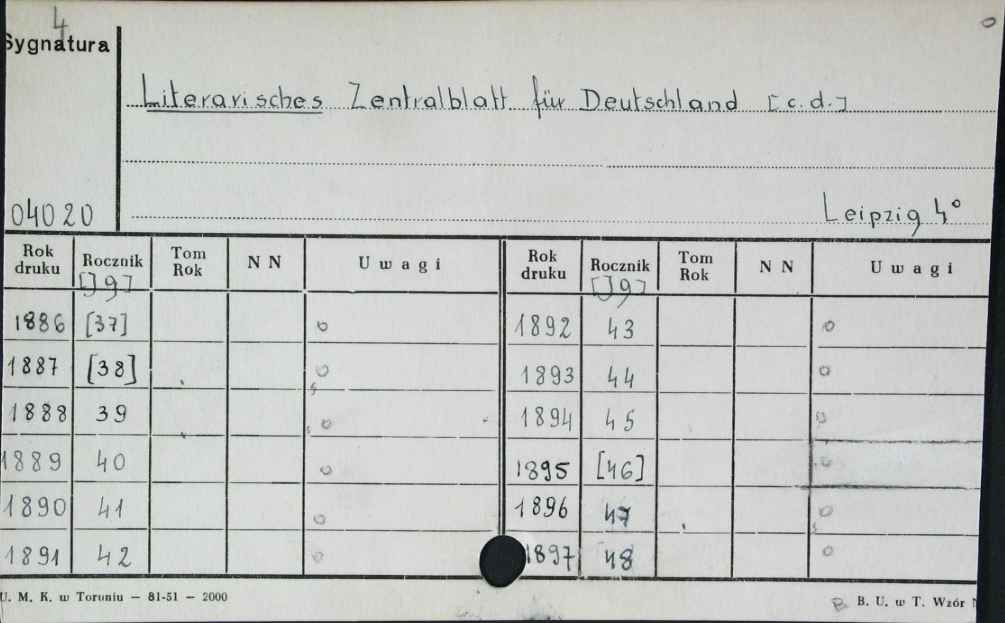 4
Sygnatura
Literarisches Zentralblatt für Deutschland [c.d.]
04020
Leipzig 4°
Rok druku Rocznik [Jg] Tom Rok N N Uwagi Rok druku Rocznik [Jg] Tom Rok N N Uwagi
1886 [37] o 1892 43 o
1887 [38] o 1893 44 o
1888 39 o 1894 45 o
1889 40 o 1895 [46] o
1890 41 o 1896 47 o
1891 42 o 1897 48 o
U. M. K. w Toruniu — 81-51 — 2000 B. U. w T. Wzór